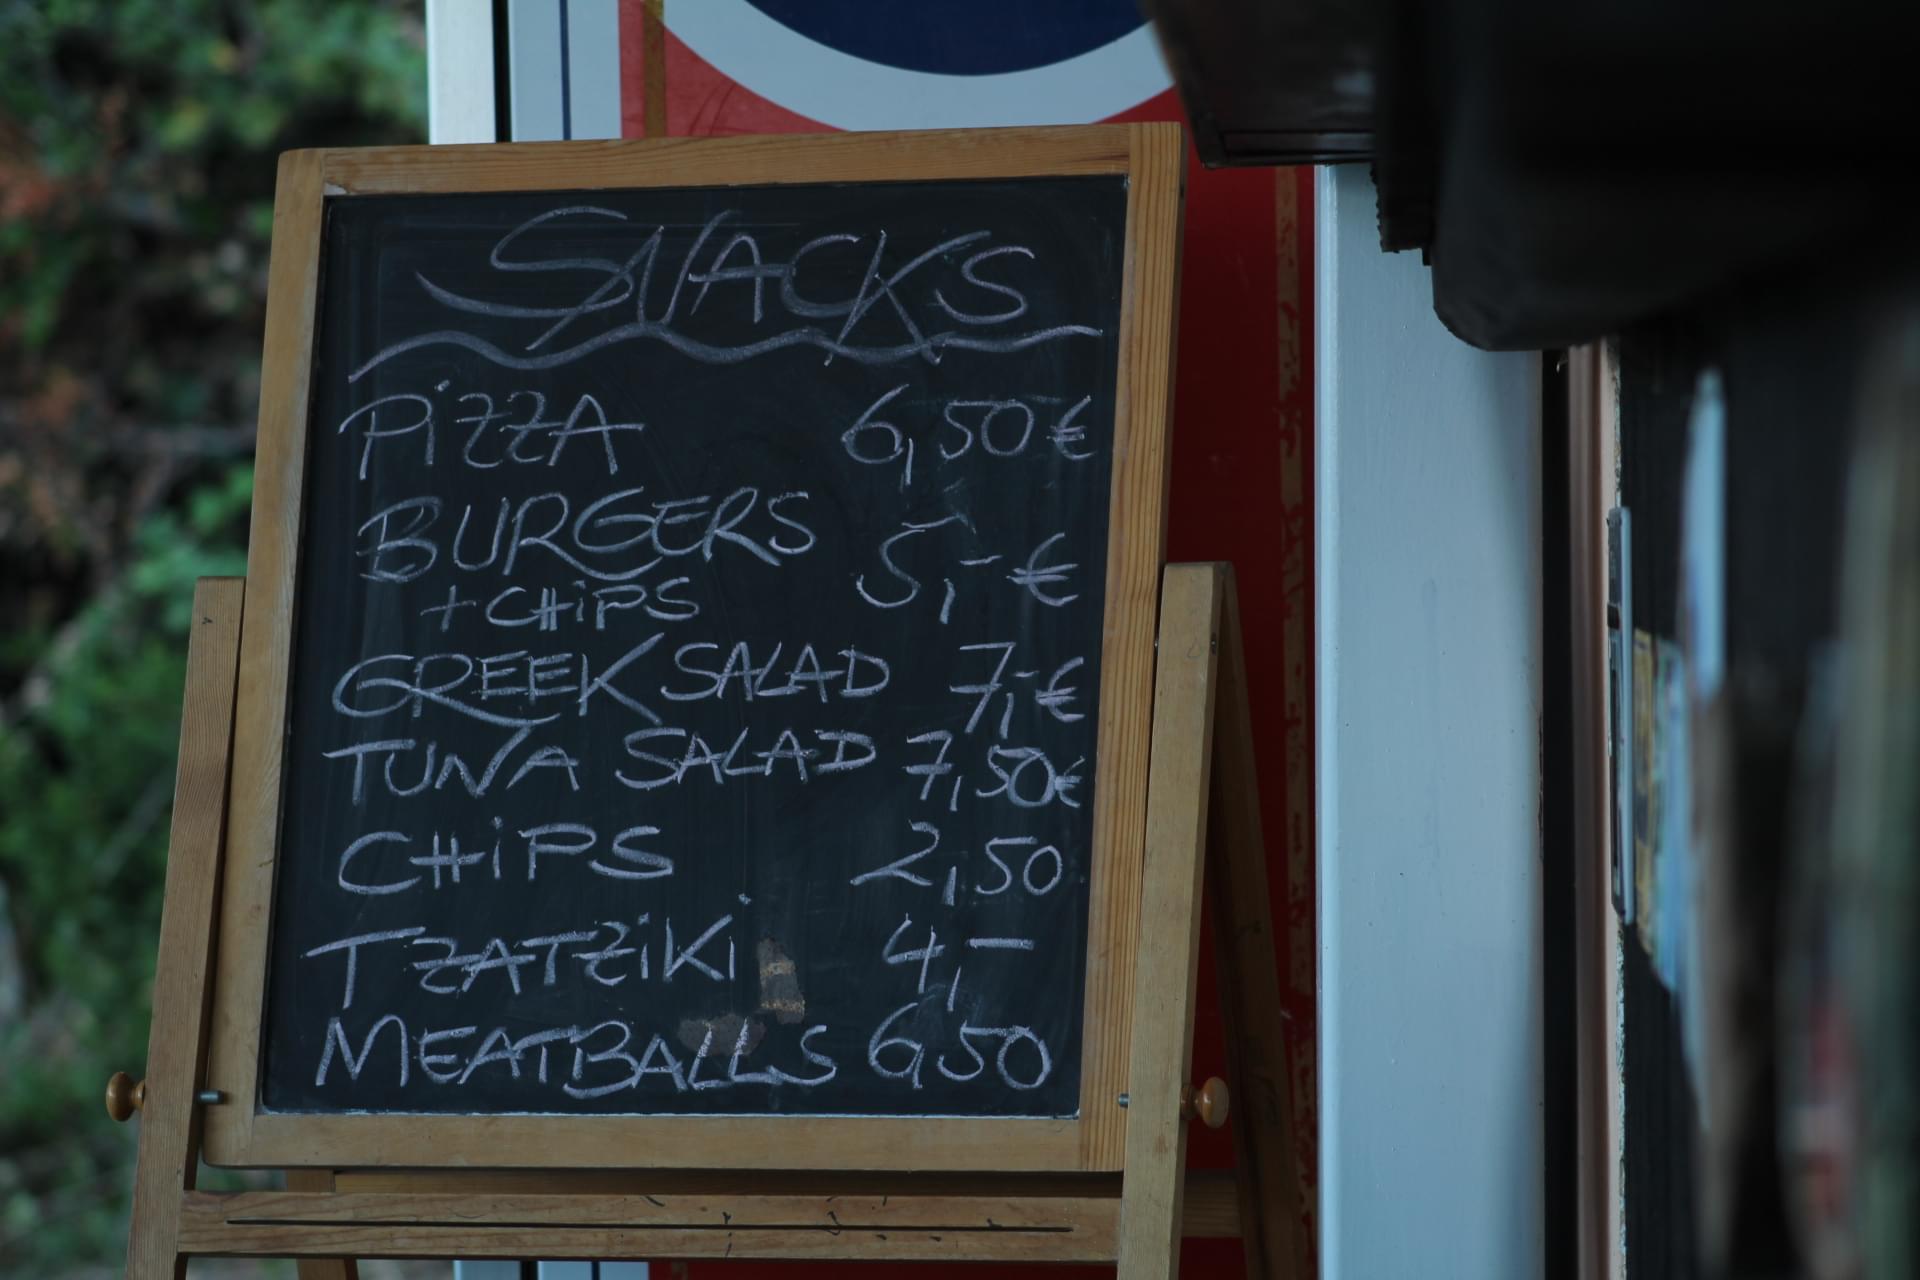 SNACKS
PiZZA 6,50€
BURGERS 5,-€
+ CHiPS
GREEK SALAD 7,-€
TUNA SALAD 7,50€
CHiPS 2,50
TZATZiKi 4,-
MEATBALLS 6,50